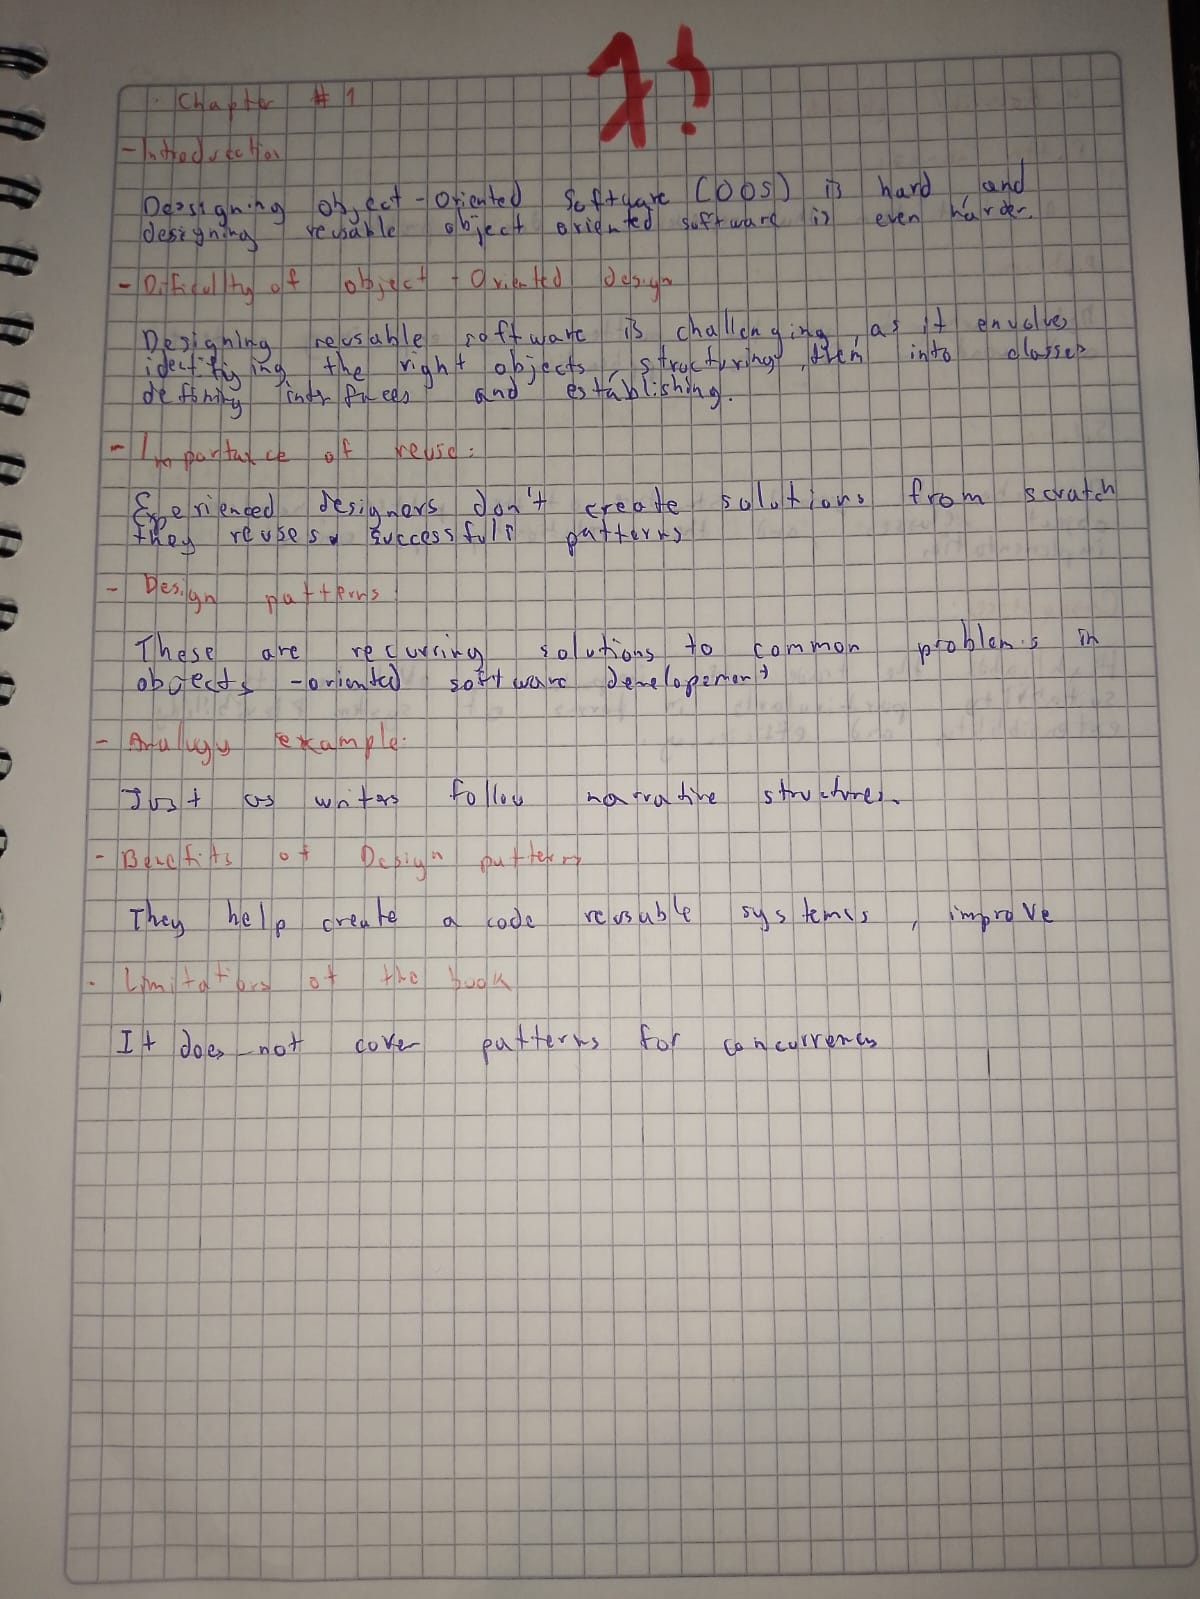 Chapter # 1
- Introducction
Dessigning object - oriented Software (OOS) is hard and
designing reusable object oriented software is even harder.
- Dificullty of object - Oriented design
Designing reusable software is challenging, as it envolves
idectifying ing the right objects, structuring them into classes
defining interfaces and establishing.
- Importance of reuse:
Experienced designers don't create solutions from scratch
they reuses successfull patterns
- Design patterns
These are recurring solutions to common problems in
objects -oriented software developement
- Analogy example:
Just as writers follow narrative structures.
- Benefits of Design patterns
They help create a code reusable systems, improve
- Limitations of the book
It does not cover patterns for concurrency